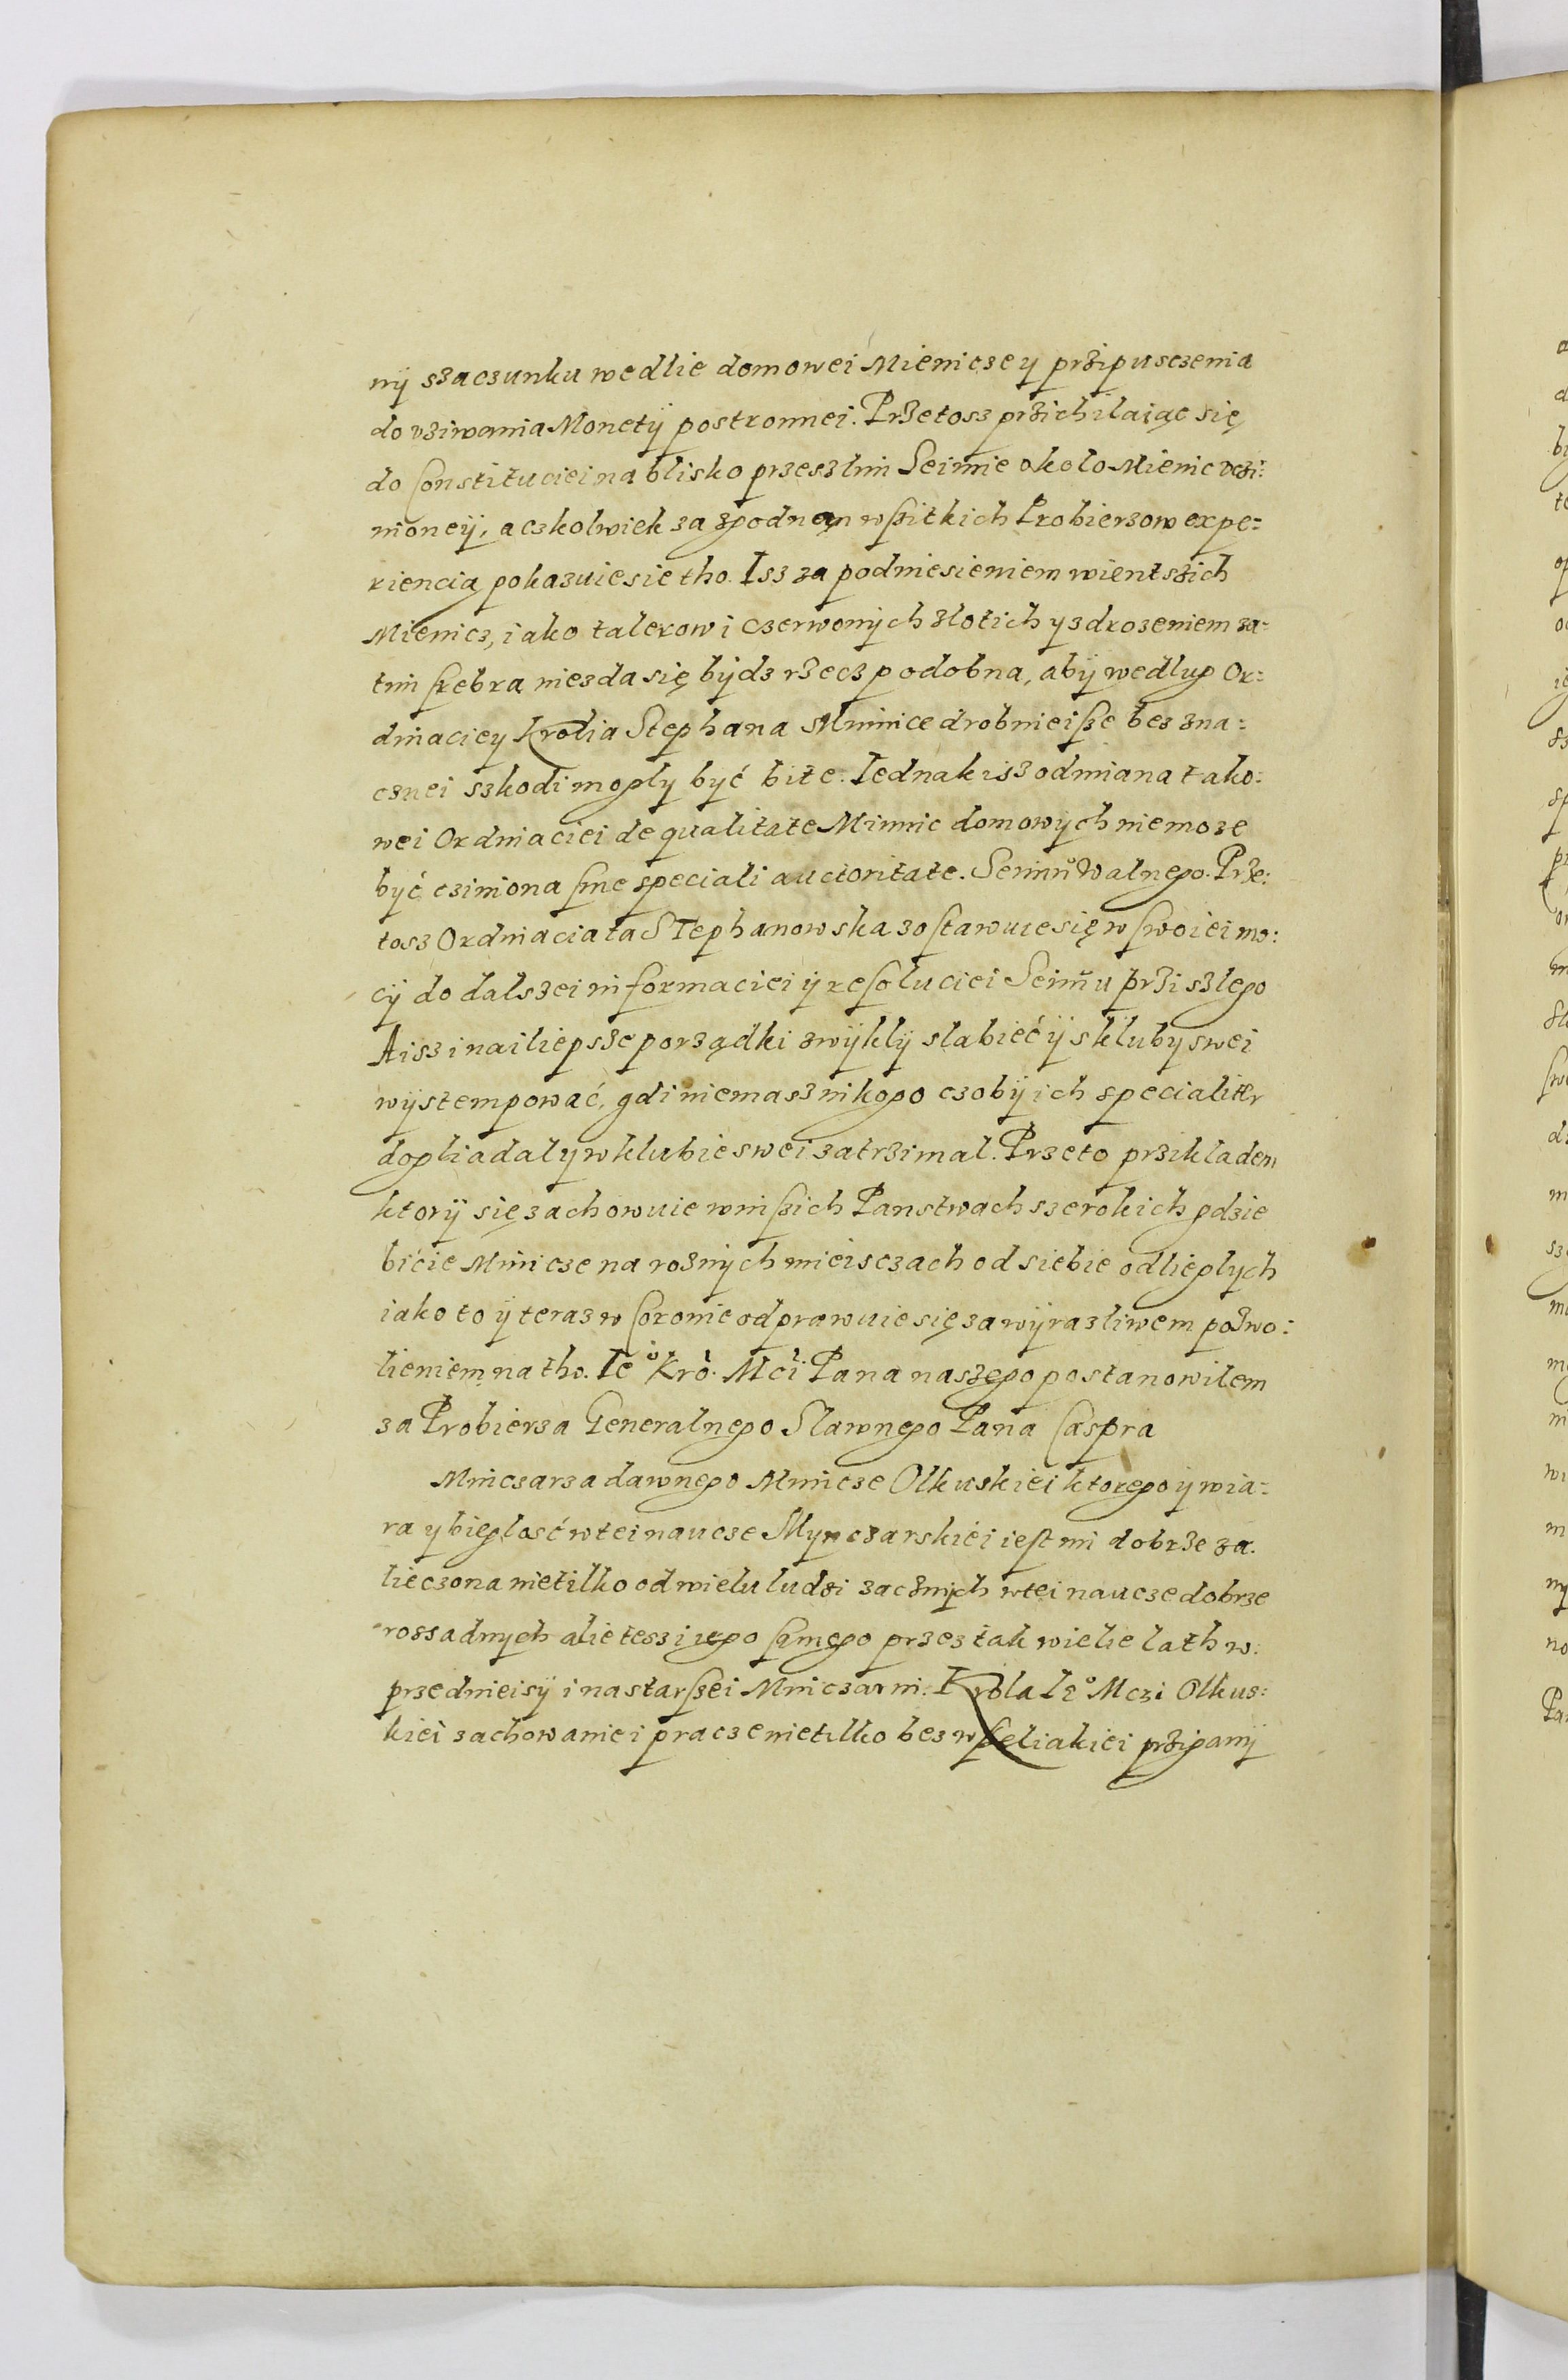 nÿ szaczunku wedlie domowei Mieniczey przipusczenia
do vziwania Monetÿ postronnei. Przetosz przichilaiąc się
do Constituciei na blisko przeszlim Seimie około Mienic vczi:
nioneÿ, aczkolwiek za zgodną wszitkich Probierzow expe:
riencią pokazuie sie tho. Isz za podniesieniem wientszich
Mienicz, iako talerow i czerwonÿch zlotich y zdrozeniem za:
tim srebra niezda się bÿdz rzecz podobna, abÿ wedlug Or:
dinaciey Krolia Stephana Mninice drobnieisze bez zna:
cznei szkodi mogly być bite. Iednak isz odmiana tako:
wei Ordinaciei de qualitate Minnic domowÿch niemoze
być cziniona sine speciali auctoritate. Seimu Walnego. Prze:
tosz Ordinacia ta STephanowska zostawuie się w swoiei mo:
cÿ do dalszei informaciei ÿ resoluciei Seim̃u przi szlego
A isz i nailiepsze porządki zwÿklÿ slabieć ÿ sklubÿ swei
wÿstempować, gdi niemasz nikogo czobÿ ich specialiter
dogliadal y w klubie swei zatrzimal. Przeto przikladem
ktorÿ się zachowuie w niszich Panstwach szerokich gdzie
bicie Mnicze na roznÿch mieisczach od siebie odlieglych
iako to ÿ teraz w Coronie odprawuie się za wÿrazliwem pozwo:
lieniem na tho. Ie° Kro. Mci. Pana naszego postanowilem
za Probierza Generalnego Slawnego Pana Caspra
Mniczarza dawnego Mnicze Olkuskiei ktorego ÿ wia:
ra y bieglosć w tei naucze Mynczarskiei iest mi dobrze za.
lieczona nietilko od wielu ludzi zacznÿch w tei naucze dobrze
rossadnych alie tesz i iego samego przez tak wielie lath w:
przednieisÿ i na starszei Mniczarni. Krola Ie° Mczi Olkus:
kiei zachowanie i pracze nietilko bez wszeliakiei prziganÿ